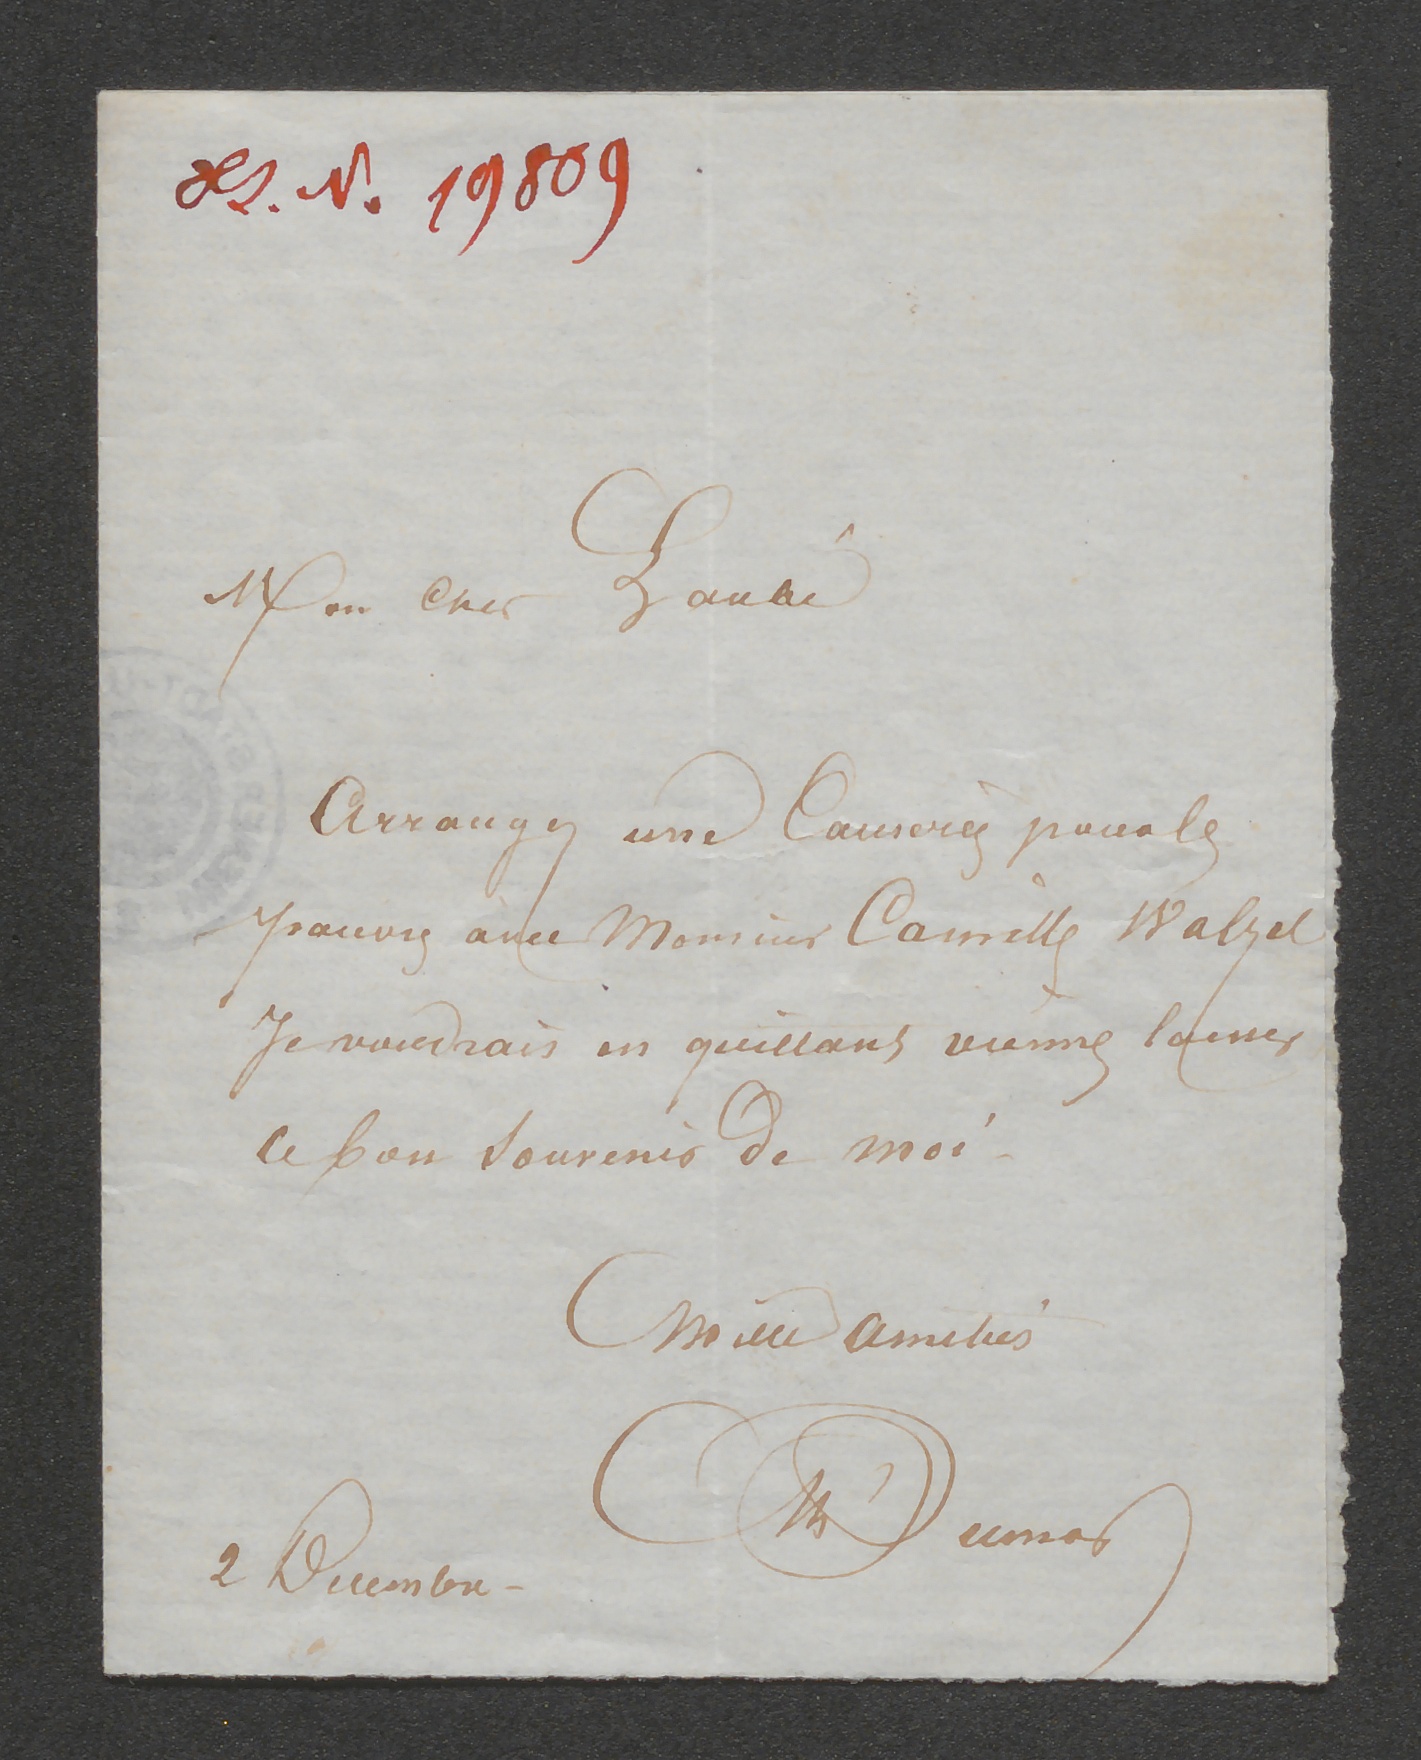 H.I. N. 19809
Mon cher Laubé
Arrangez une Causerie pour les
pauvres avec Monsieur Camille Walzel
Je voudrais en quittant vienne laisser
ce bon souvenir de moi -
Mille amitiés
Dumas
2 Decembre -